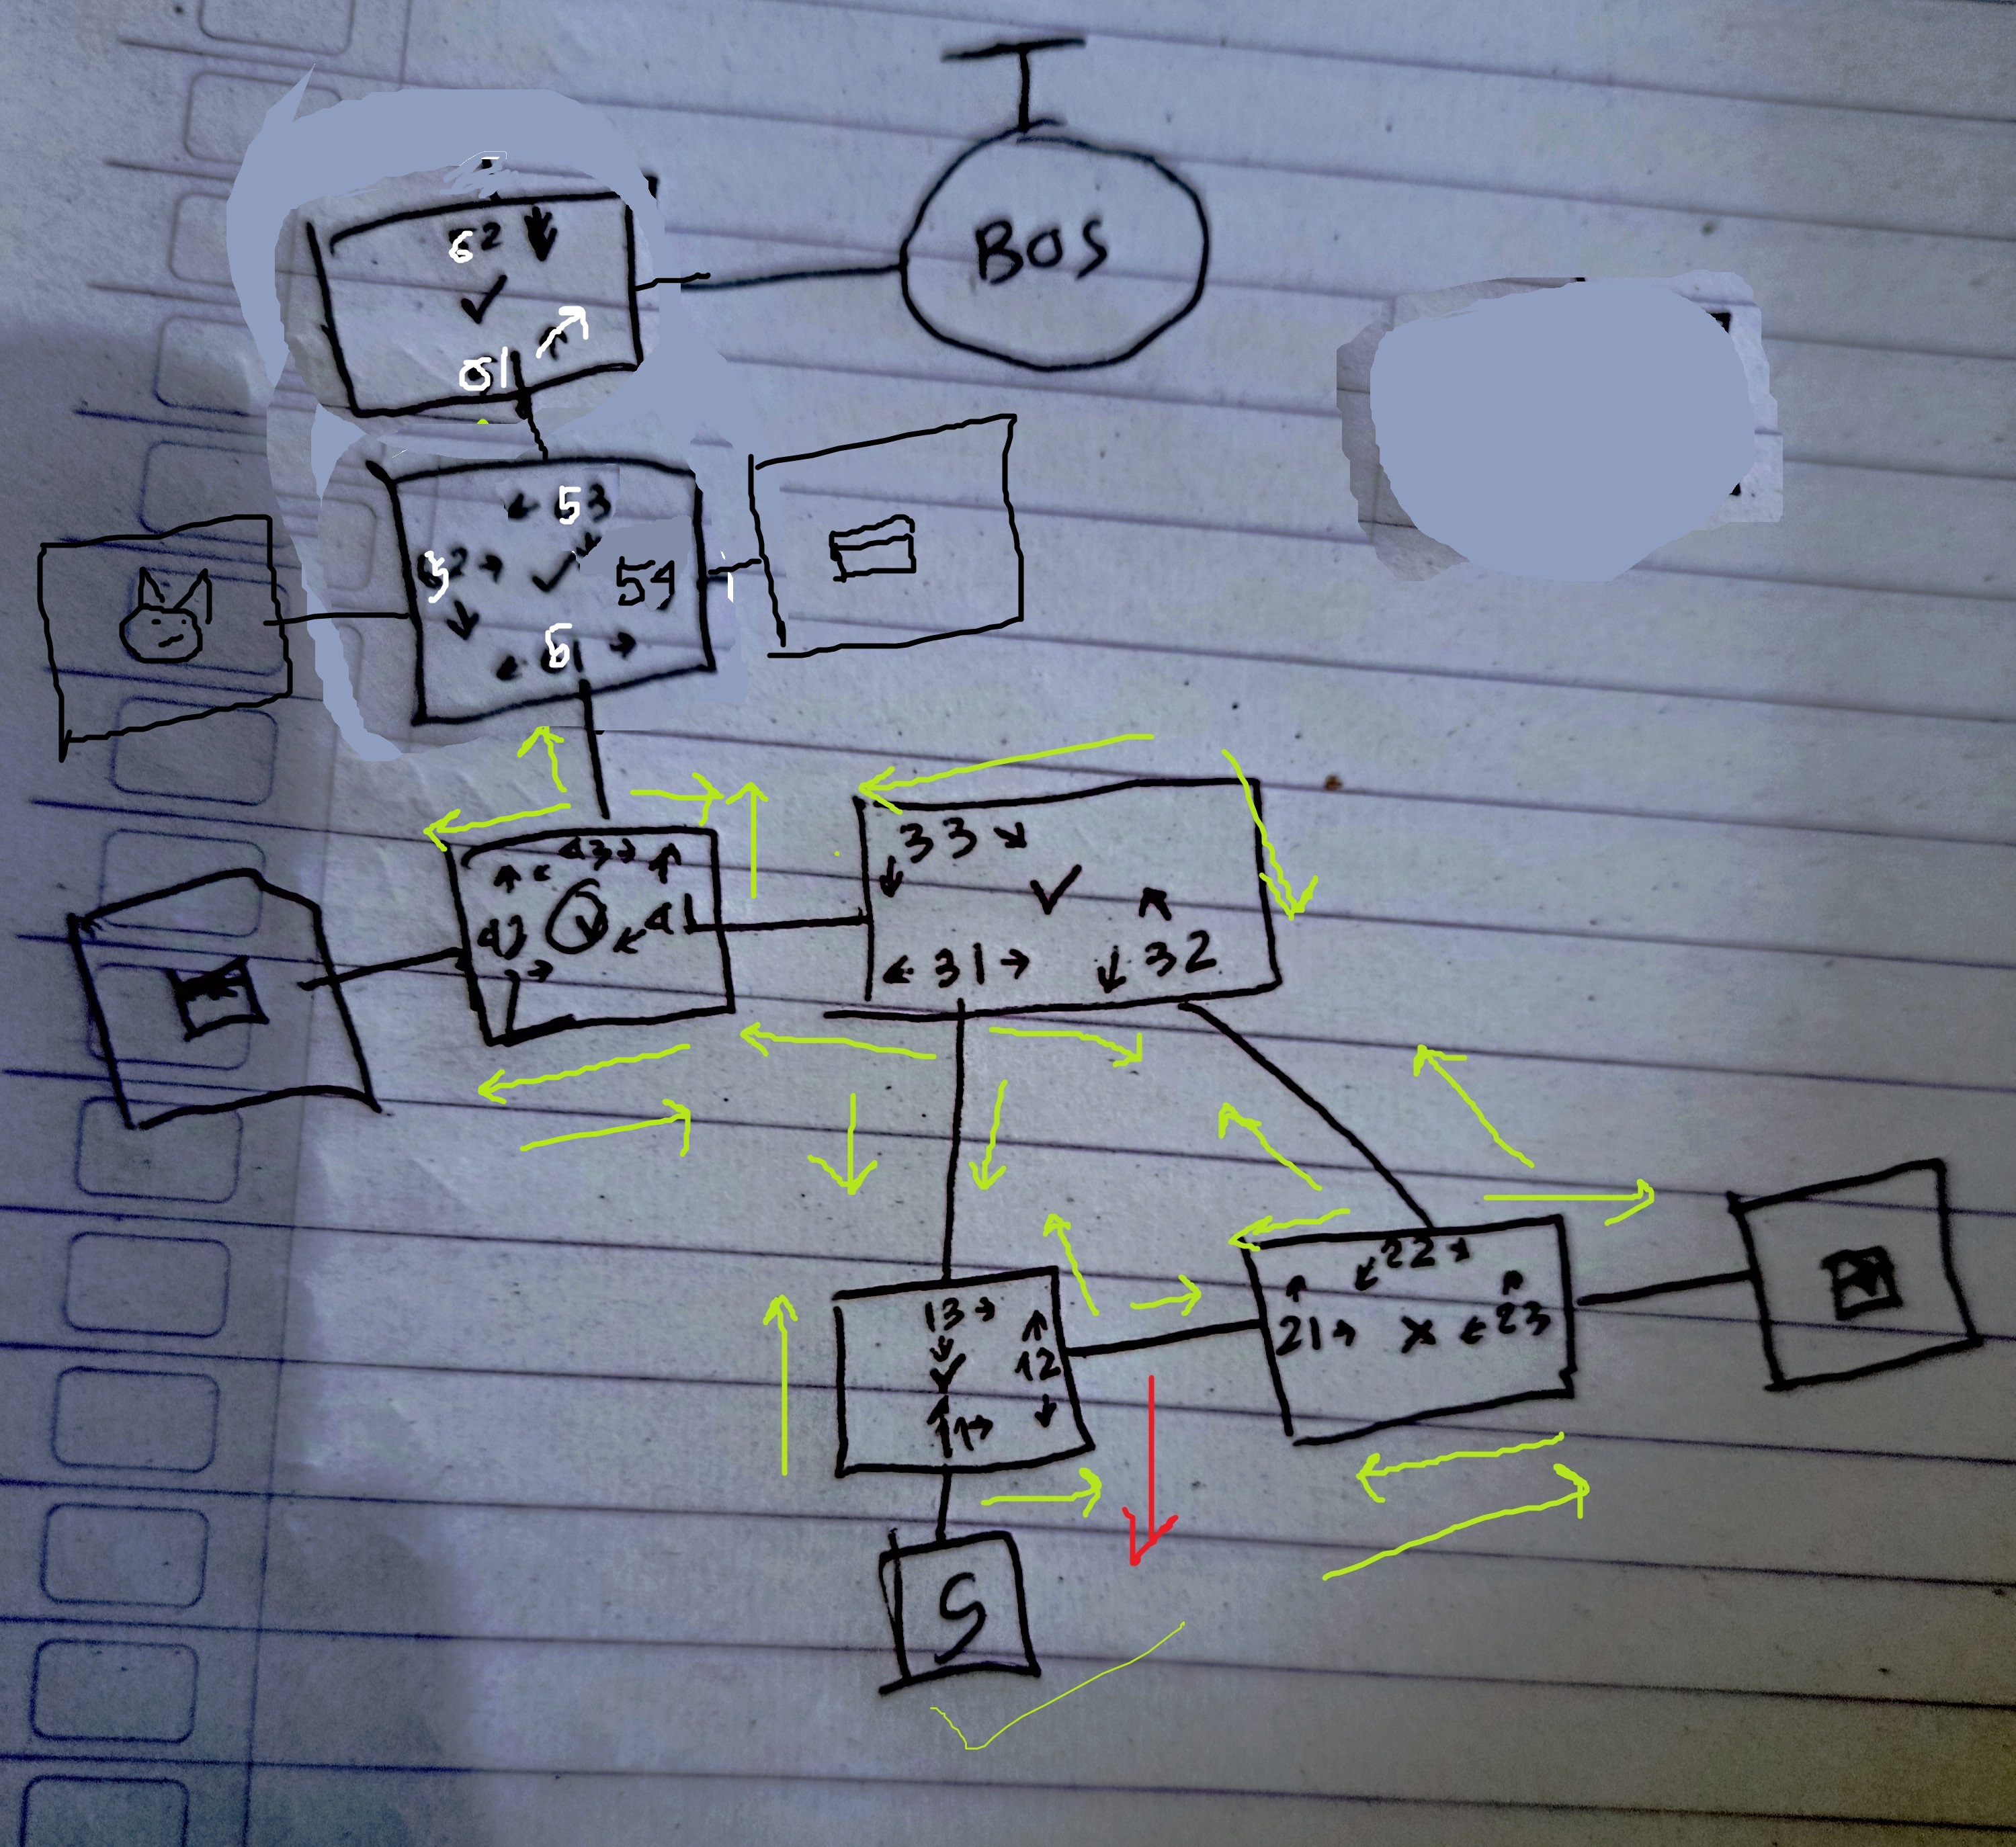 BOS
62 ↓
✓
61 ↗
← 53
52 → ✓ 54
↓
← 51 →
← 43 → ↑
42 41
→
33 ↘
↓ ✓
← 31 → ↓ 32
↙ 22 ↘
21 → × ← 23
13 →
↓
✓ 12
↑
11 → ↓
S